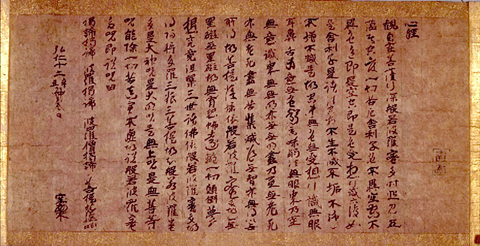 心経
観自在菩薩行深般若波羅蜜多時照見五
蘊皆空度一切苦厄舎利子色不異空空不
異色色即是空空即是色受想行識亦復如
是舎利子是諸法空相不生不滅不垢不浄
不増不減是故空中無色無受想行識無眼
耳鼻舌身意無色声香味触法無眼界乃至
無意識界無無明亦無無明尽乃至無老死
亦無老死尽無苦集滅道無智亦無得以無
所得故菩提薩埵依般若波羅蜜多故心無
罣礙無罣礙故無有恐怖遠離一切顛倒夢
想究竟涅槃三世諸仏依般若波羅蜜多故
得阿耨多羅三藐三菩提故知般若波羅蜜
多是大神呪是大明呪是無上呪是無等等
呪能除一切苦真実不虚故説般若波羅蜜
多呪即説呪曰
掲諦掲諦 波羅掲諦 波羅僧掲諦 菩提
弘仁十二年五月